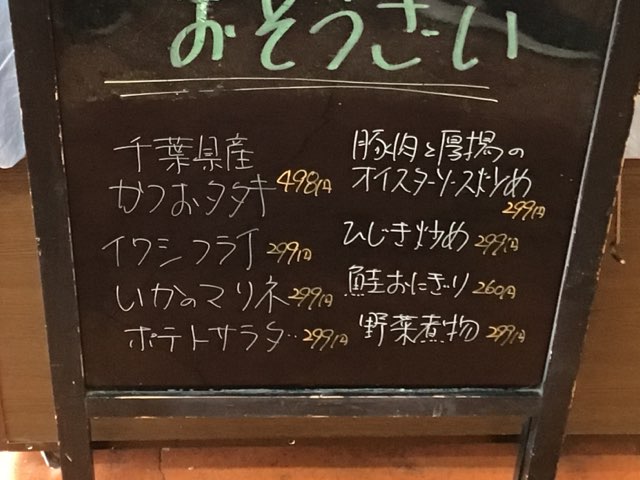 おそうざい
千葉県産
かつおタタキ 498円
イワシフライ 299円
いかのマリネ 299円
ポテトサラダ 299円
豚肉と厚揚の
オイスターソース炒め
299円
ひじき炒め 299円
鮭おにぎり 260円
野菜煮物 299円